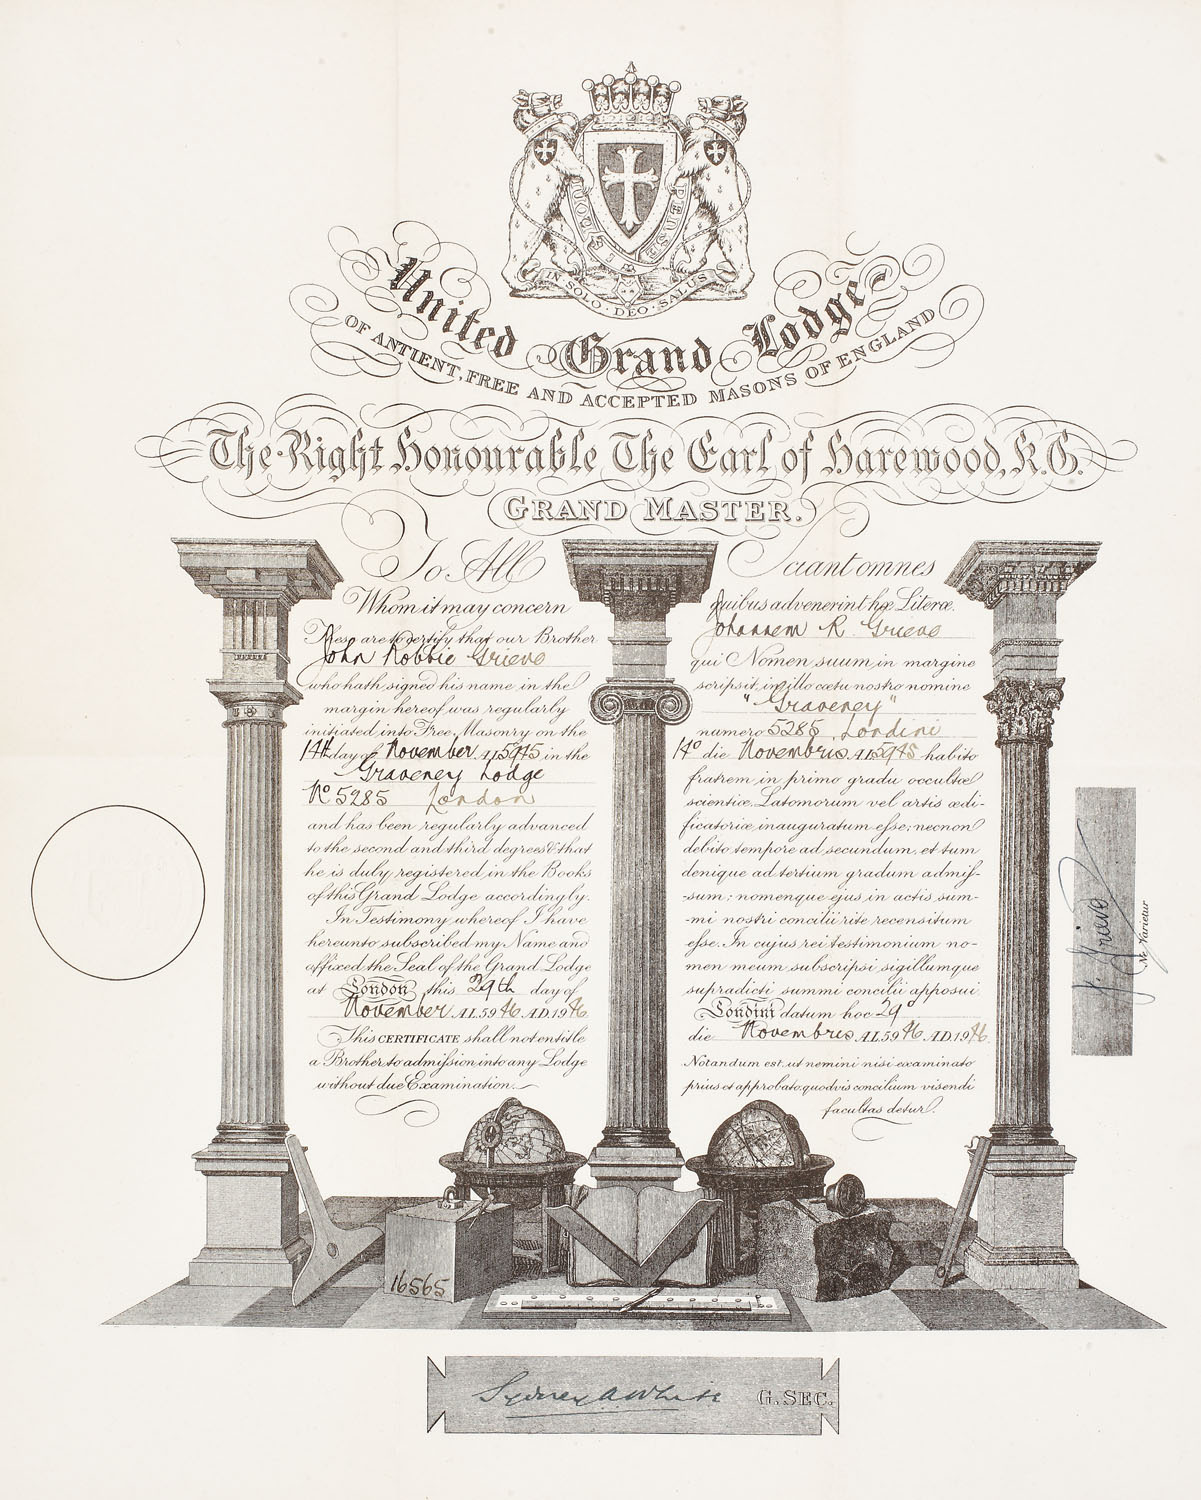 HONI
PENSE
IN SOLO · DEO · SALUS
United Grand Lodge
OF ANTIENT, FREE AND ACCEPTED MASONS OF ENGLAND
The Right Honourable The Earl of Harewood, K.G.
GRAND MASTER.
To All
Whom it may concern
These are to certify that our Brother
John Robbie Grieve
who hath signed his name in the
margin hereof was regularly
initiated into Free Masonry on the
14th day of November A.L. 5945 in the
Graveney Lodge
No 5285 London
and has been regularly advanced
to the second and third degrees & that
he is duly registered in the Books
of this Grand Lodge accordingly.
In Testimony whereof I have
hereunto subscribed my Name and
affixed the Seal of the Grand Lodge
at London this 29th day of
November A.L. 5946 A.D. 1946.
This CERTIFICATE shall not entitle
a Brother to admiſsion into any Lodge
without due Examination.
Sciant omnes
quibus advenerint hæ Literæ.
Johannem R. Grieve
qui Nomen suum in margine
scripsit, in illo cœtu nostro nomine
"Graveney"
numero 5285 Londini
14º die Novembris A.L. 5945 habito
fratrem in primo gradu occultæ
scientiæ Latomorum vel artis ædi-
ficatoriæ, inauguratum eſse; necnon
debito tempore ad secundum, et tum
denique ad tertium gradum admiſ-
-sum; nomenque ejus in actis sum-
-mi nostri concilii rite recensitum
eſse. In cujus rei testimonium no-
men meum subscripsi, sigillumque
supradicti summi concilii apposui.
Londini datum hoc 29º
die Novembris A.L. 5946 A.D. 1946.
Notandum est, ut nemini nisi examinato
prius et approbato, quodvis concilium visendi
facultas detur.
J. Grieve
Ne Varietur
16565
Sydney A White G. SEC.